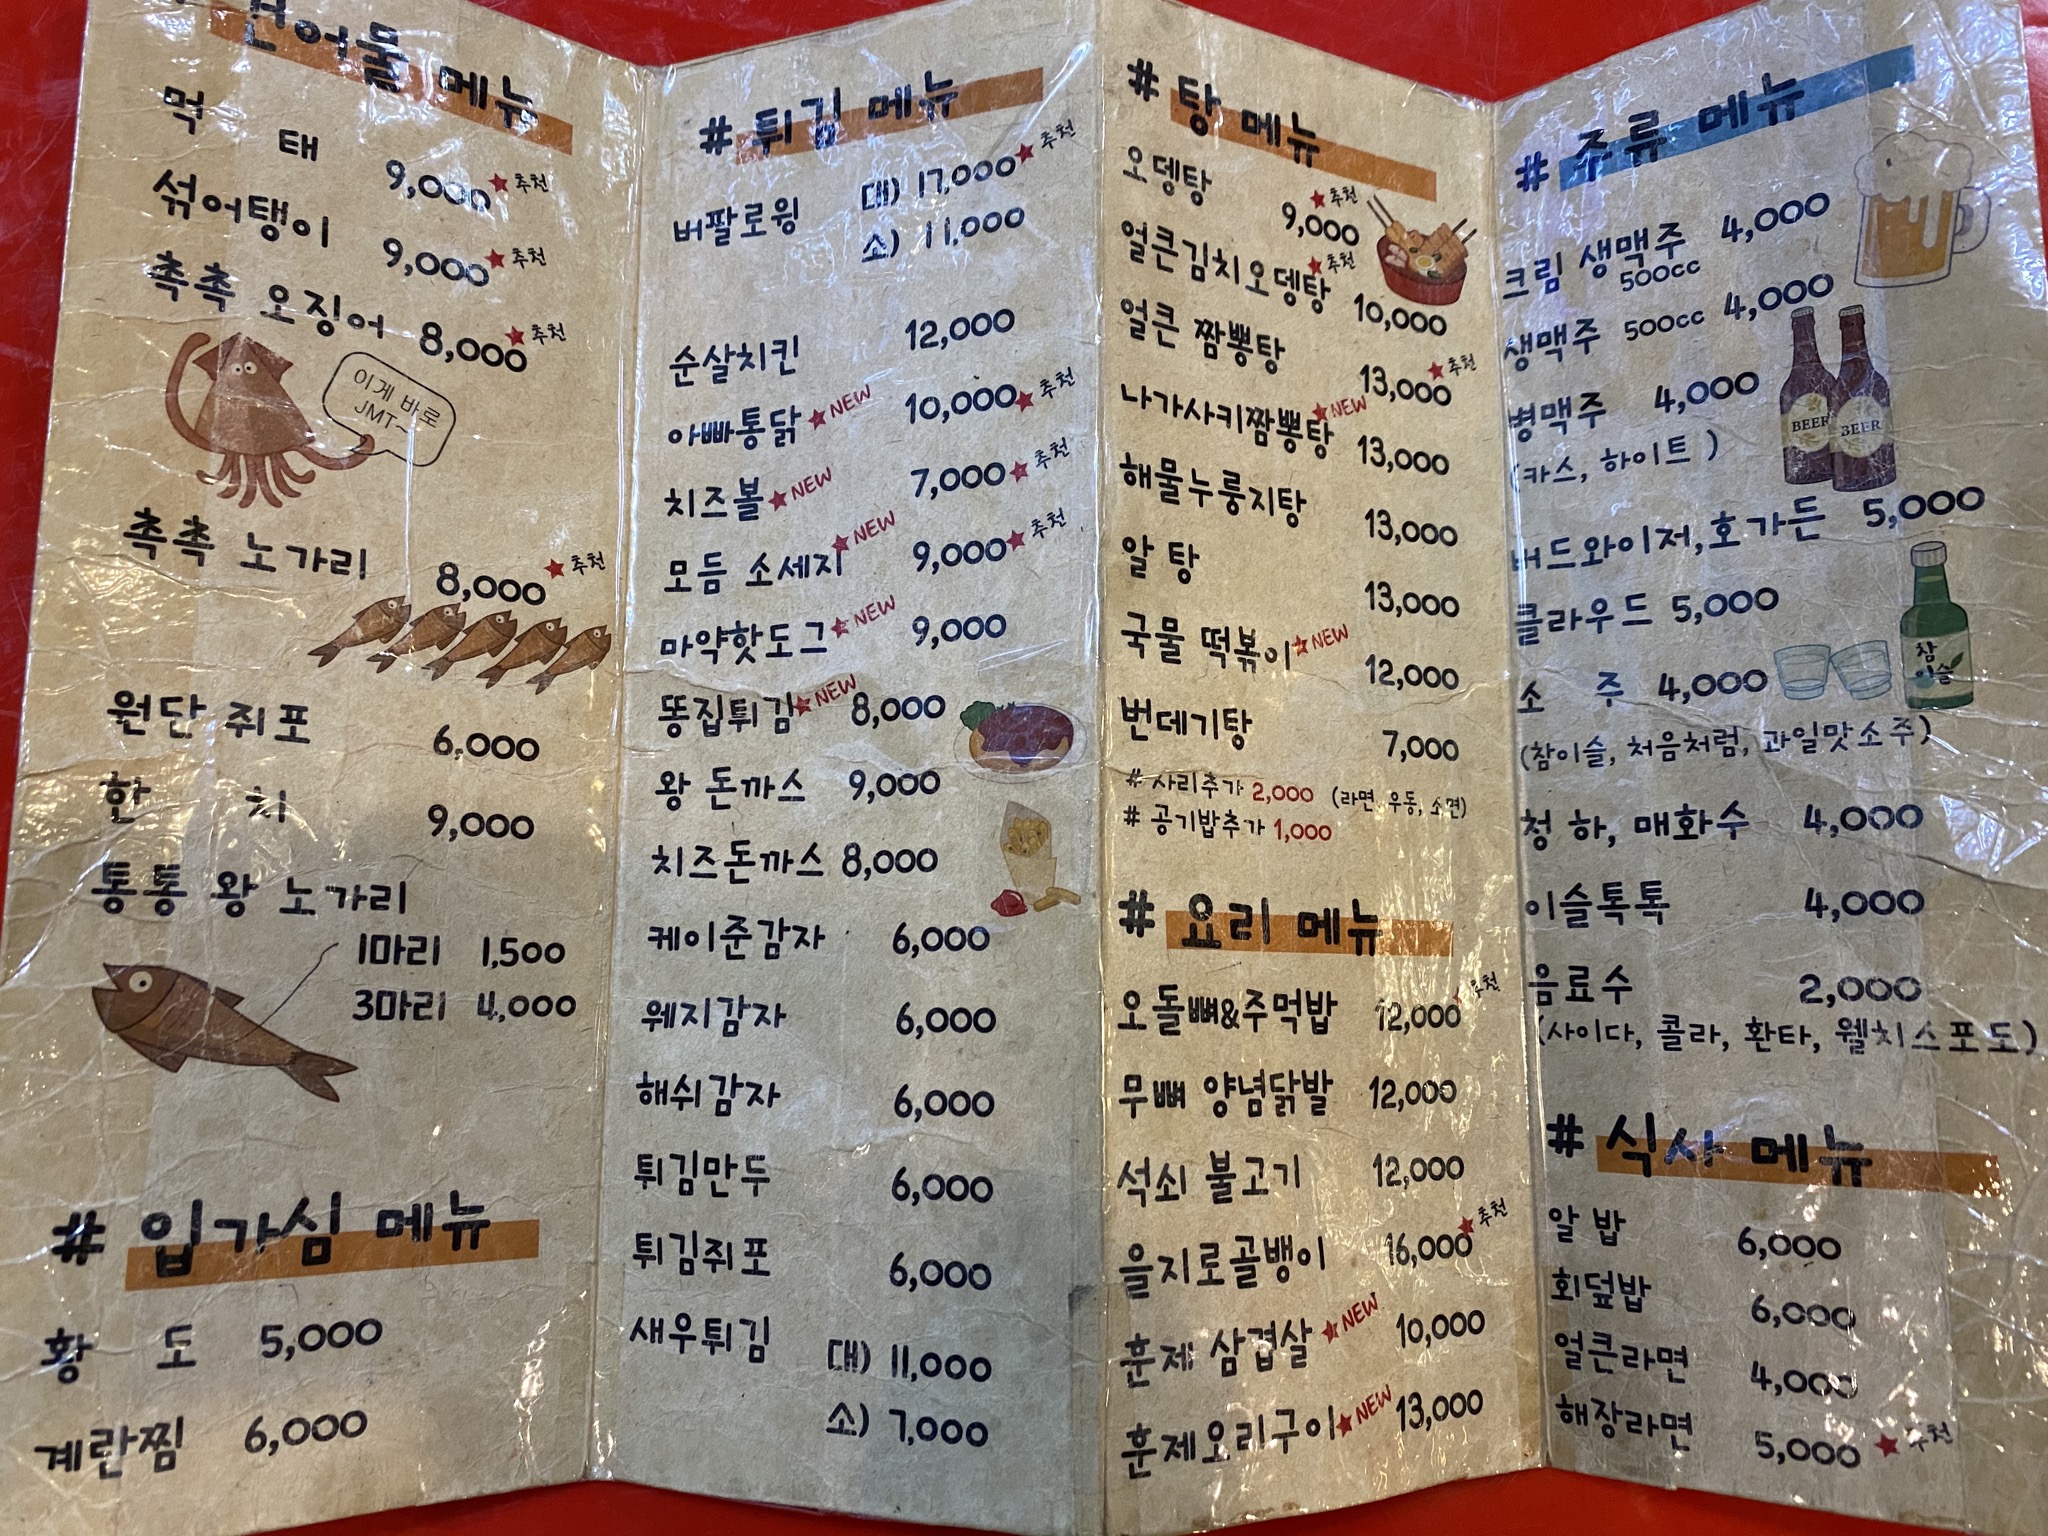 건어물 메뉴
먹 태 9,000 ★추천
섞어탱이 9,000 ★추천
촉촉 오징어 8,000 ★추천
이게 바로
JMT~
촉촉 노가리 8,000 ★추천
원단 쥐포 6,000
한 치 9,000
통통 왕 노가리
1마리 1,500
3마리 4,000
# 입가심 메뉴
황 도 5,000
계란찜 6,000
# 튀김 메뉴
버팔로윙 대) 17,000 ★추천
소) 11,000
순살치킨 12,000
아빠통닭 ★NEW 10,000 ★추천
치즈볼 ★NEW 7,000 ★추천
모듬 소세지 ★NEW 9,000 ★추천
마약핫도그 ★NEW 9,000
똥집튀김 ★NEW 8,000
왕 돈까스 9,000
치즈돈까스 8,000
케이준감자 6,000
웨지감자 6,000
해쉬감자 6,000
튀김만두 6,000
튀김쥐포 6,000
새우튀김 대) 11,000
소) 7,000
# 탕 메뉴
오뎅탕 9,000 ★추천
얼큰김치오뎅탕 10,000 ★추천
얼큰 짬뽕탕 13,000 ★추천
나가사키짬뽕탕 ★NEW 13,000
해물누룽지탕 13,000
알 탕 13,000
국물 떡볶이 ★NEW 12,000
번데기탕 7,000
# 사리추가 2,000 (라면, 우동, 소면)
# 공기밥추가 1,000
# 요리 메뉴
오돌뼈&주먹밥 12,000 추천
무뼈 양념닭발 12,000
석쇠 불고기 12,000
을지로골뱅이 16,000 ★추천
훈제 삼겹살 ★NEW 10,000
훈제오리구이 ★NEW 13,000
# 주류 메뉴
크림 생맥주 4,000
500cc
생맥주 500cc 4,000
병맥주 4,000
(카스, 하이트)
BEER BEER
버드와이저, 호가든 5,000
클라우드 5,000
소 주 4,000
참
이슬
(참이슬, 처음처럼, 과일맛소주)
청하, 매화수 4,000
이슬톡톡 4,000
음료수 2,000
(사이다, 콜라, 환타, 웰치스포도)
# 식사 메뉴
알 밥 6,000
회덮밥 6,000
얼큰라면 4,000
해장라면 5,000 ★추천